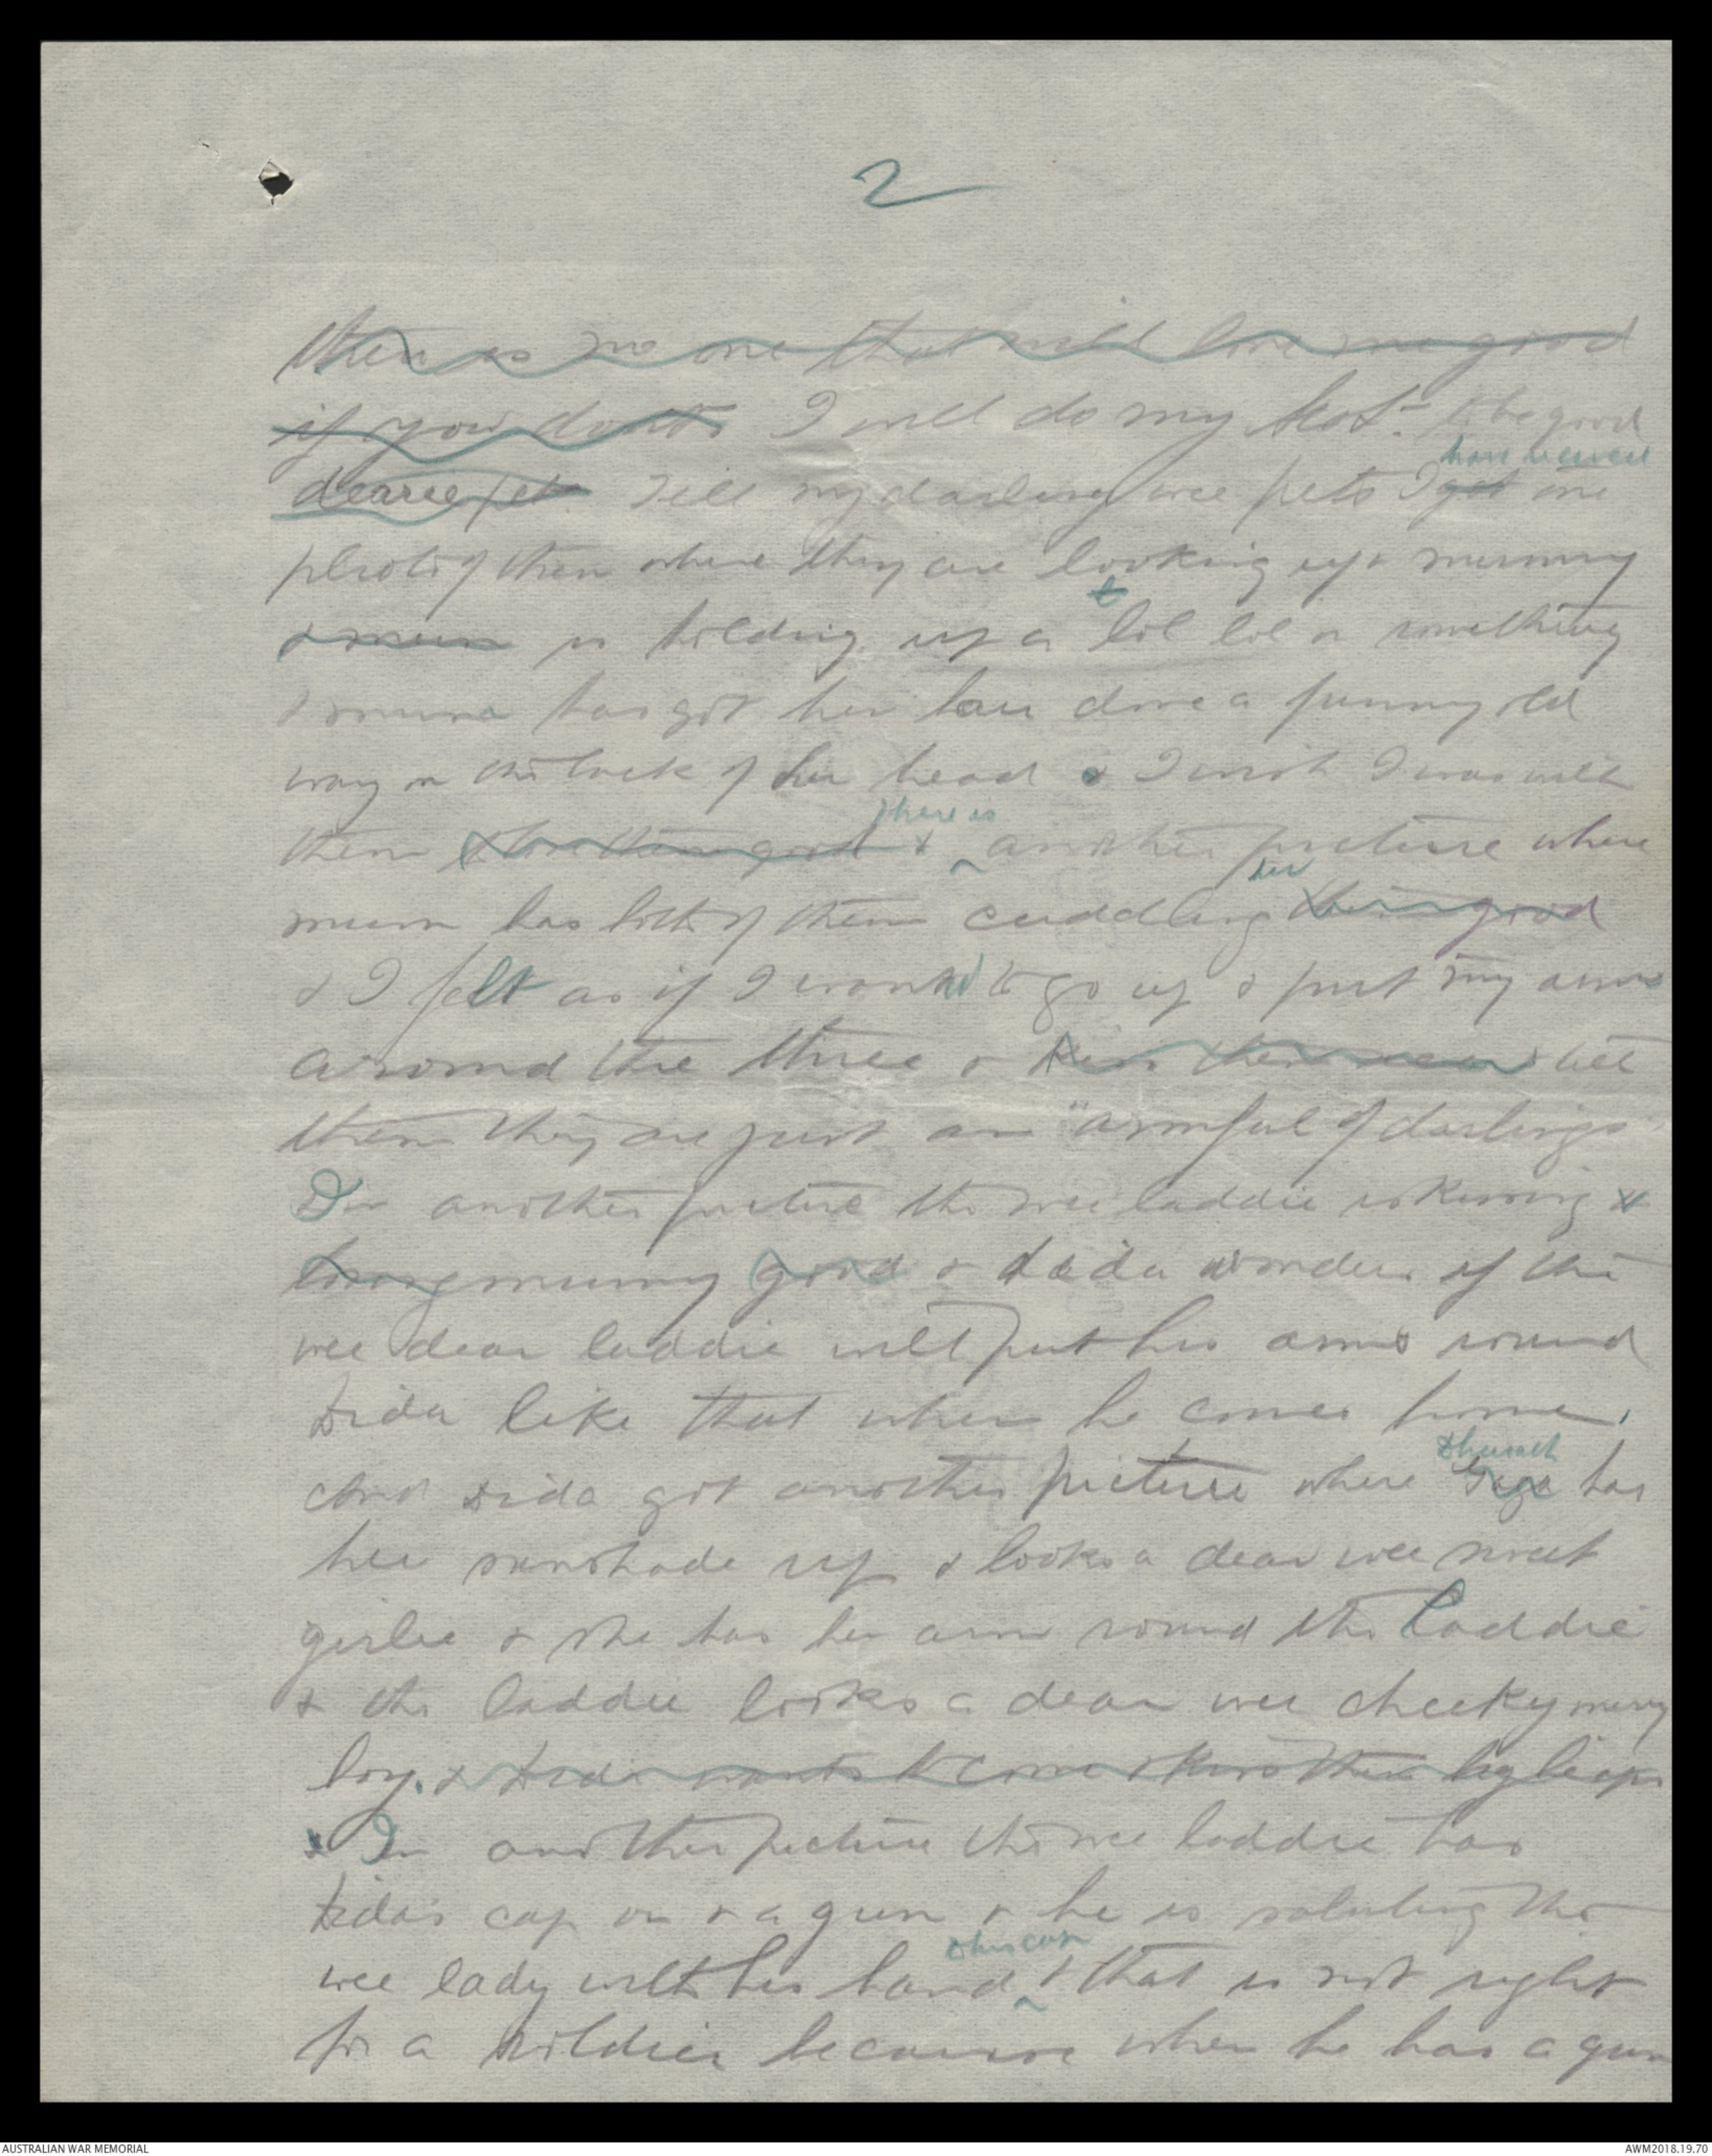 2
there is no one that will love me good
if you don't I will do my best to be good
dearie pet. Tell my darling wee pets I got one
have received
photo of them where they are looking up & mummy
& mum is holding up a lol lol or something
& mum has got her hair done a funny old
way on the back of her head & I wish I was with
them & love them good & another picture where
there is
mum has both of them cuddling them good
her
& I felt as if I wanted to go up & put my arms
around the three & kiss them
them they are just an "armful of darlings"
In another picture the wee laddie is kissing &
loving mummy good & dada wonders if the
wee dear laddie will put his arms round
Dida like that when he comes home.
And Dida got another picture where has
her sunshade up & looks a dear wee sweet
girlie & she has her arm round the laddie
& the laddie looks a dear wee cheeky
boy. & Dida wants to come & kiss them big
& In another picture the wee laddie has
Dida's cap on & a gun & he is saluting the
wee lady with his hand & that is not right
& his cap
for a soldier because when he has a gun
AUSTRALIAN WAR MEMORIAL
AWM2018.19.70